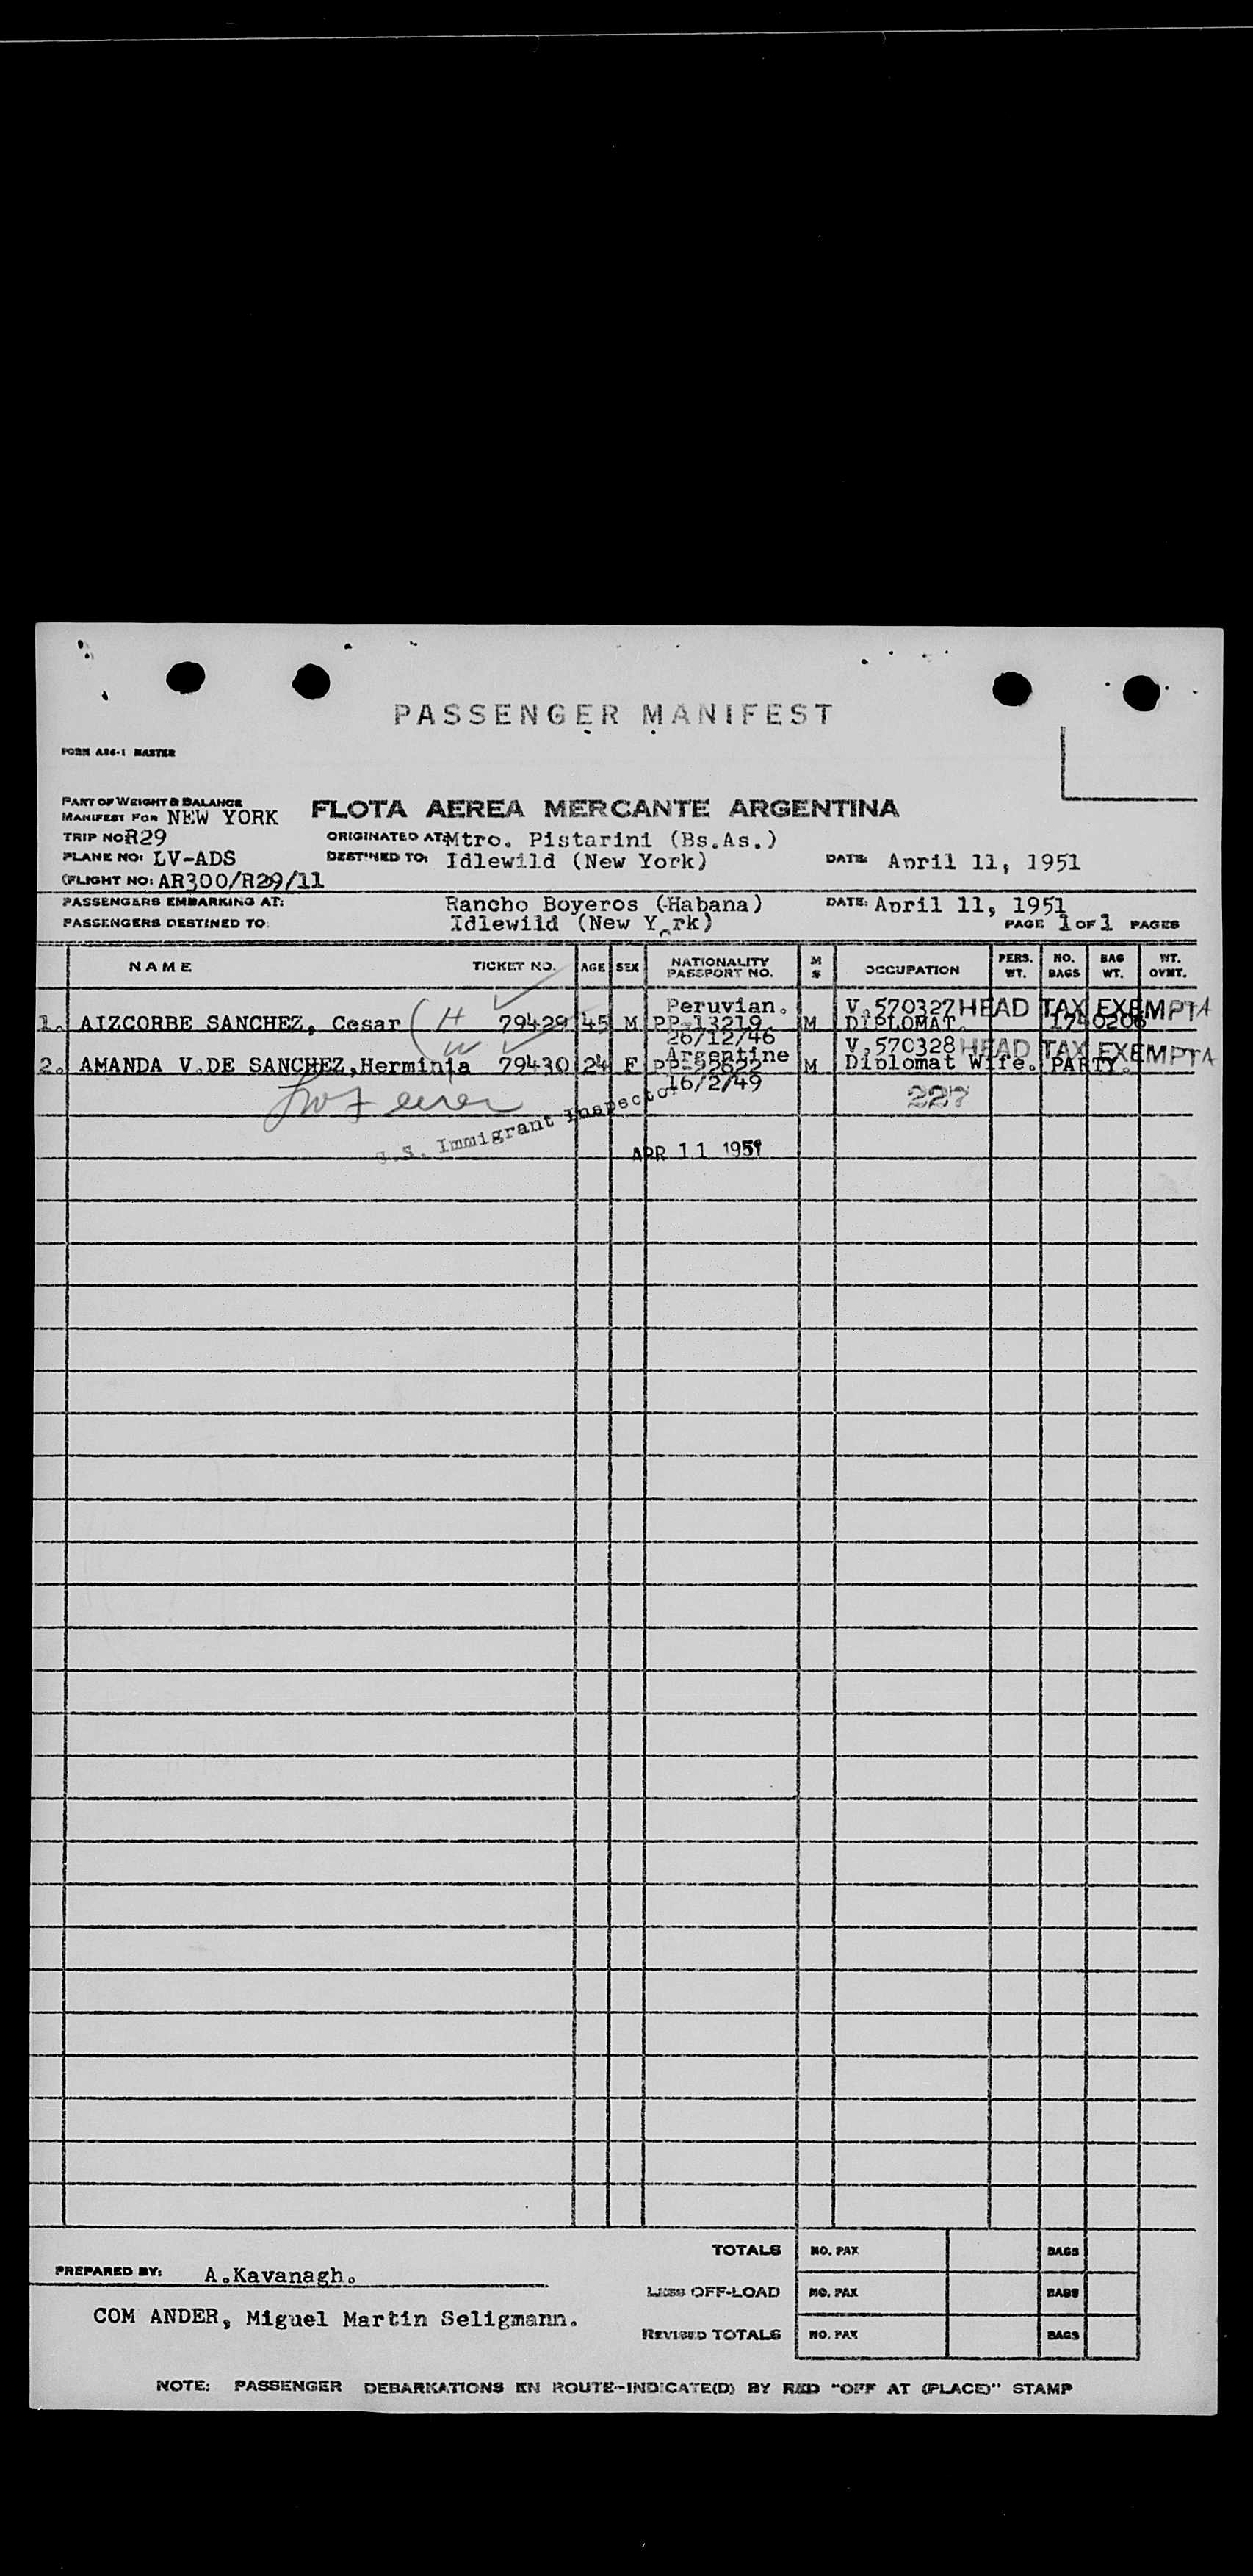 PASSENGER MANIFEST
FORM A86-1 MASTER
PART OF WEIGHT & BALANCE
MANIFEST FOR NEW YORK
FLOTA AEREA MERCANTE ARGENTINA
TRIP NO R29
ORIGINATED AT: Mtro. Pistarini (Bs.As.)
PLANE NO: LV-ADS
DESTINED TO: Idlewild (New York)
DATE: April 11, 1951
(FLIGHT NO: AR300/R29/11
PASSENGERS EMBARKING AT: Rancho Boyeros (Habana)
DATE: April 11, 1951
PASSENGERS DESTINED TO: Idlewild (New Y rk)
PAGE 1 OF 1 PAGES
NAME TICKET NO. AGE SEX NATIONALITY PASSPORT NO. M S OCCUPATION PERS. WT. NO. BAGS BAG WT. WT. OVMT.
Peruvian. V.570327 HEAD TAX EXEMPT A
1. AIZCORBE SANCHEZ, Cesar ( H 79429 45 M PP-13219 M DIPLOMAT. 1740206
26/12/46
W Argentine V.570328 HEAD TAX EXEMPT A
2. AMANDA V.DE SANCHEZ, Herminia 79430 24 F PP-92622 M Diplomat Wife. PARTY.
16/2/49
227
U.S. Immigrant Inspector
APR 11 1951
TOTALS NO. PAX BAGS
PREPARED BY: A.Kavanagh.
LESS OFF-LOAD NO. PAX BAGS
COM ANDER, Miguel Martin Seligmann.
REVISED TOTALS NO. PAX BAGS
NOTE: PASSENGER DEBARKATIONS EN ROUTE-INDICATE(D) BY RED "OFF AT (PLACE)" STAMP